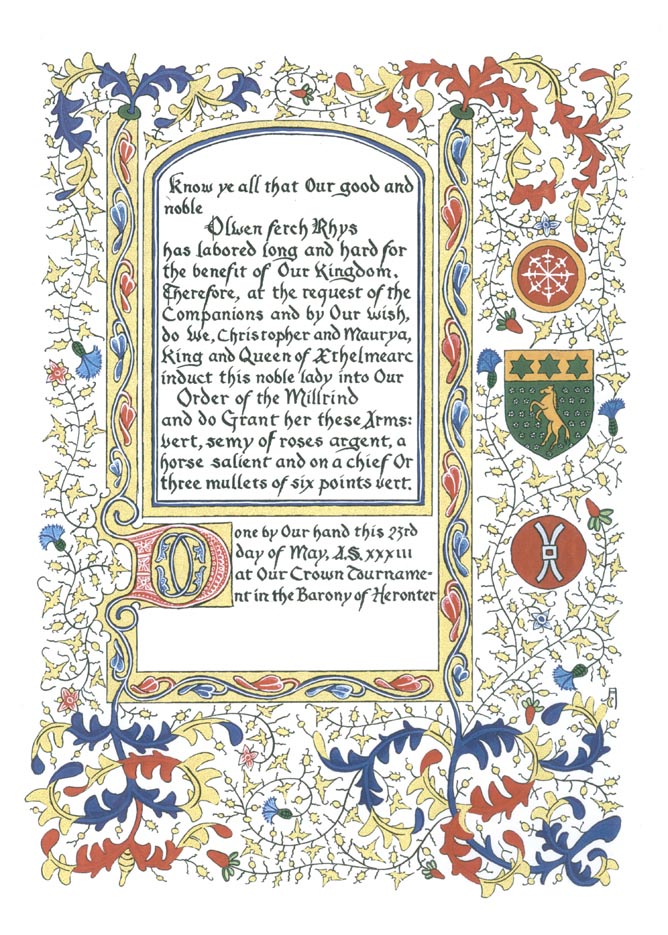 Know ye all that Our good and
noble
Olwen ferch Rhys
has labored long and hard for
the benefit of Our Kingdom.
Therefore, at the request of the
Companions and by Our wish,
do We, Christopher and Maurya,
King and Queen of Æthelmearc
induct this noble lady into Our
Order of the Millrind
and do Grant her these Arms:
vert, semy of roses argent, a
horse salient and on a chief Or
three mullets of six points vert.
Done by Our hand this 23rd
day of May, A.S. xxxiii
at Our Crown Tourname-
nt in the Barony of Heronter